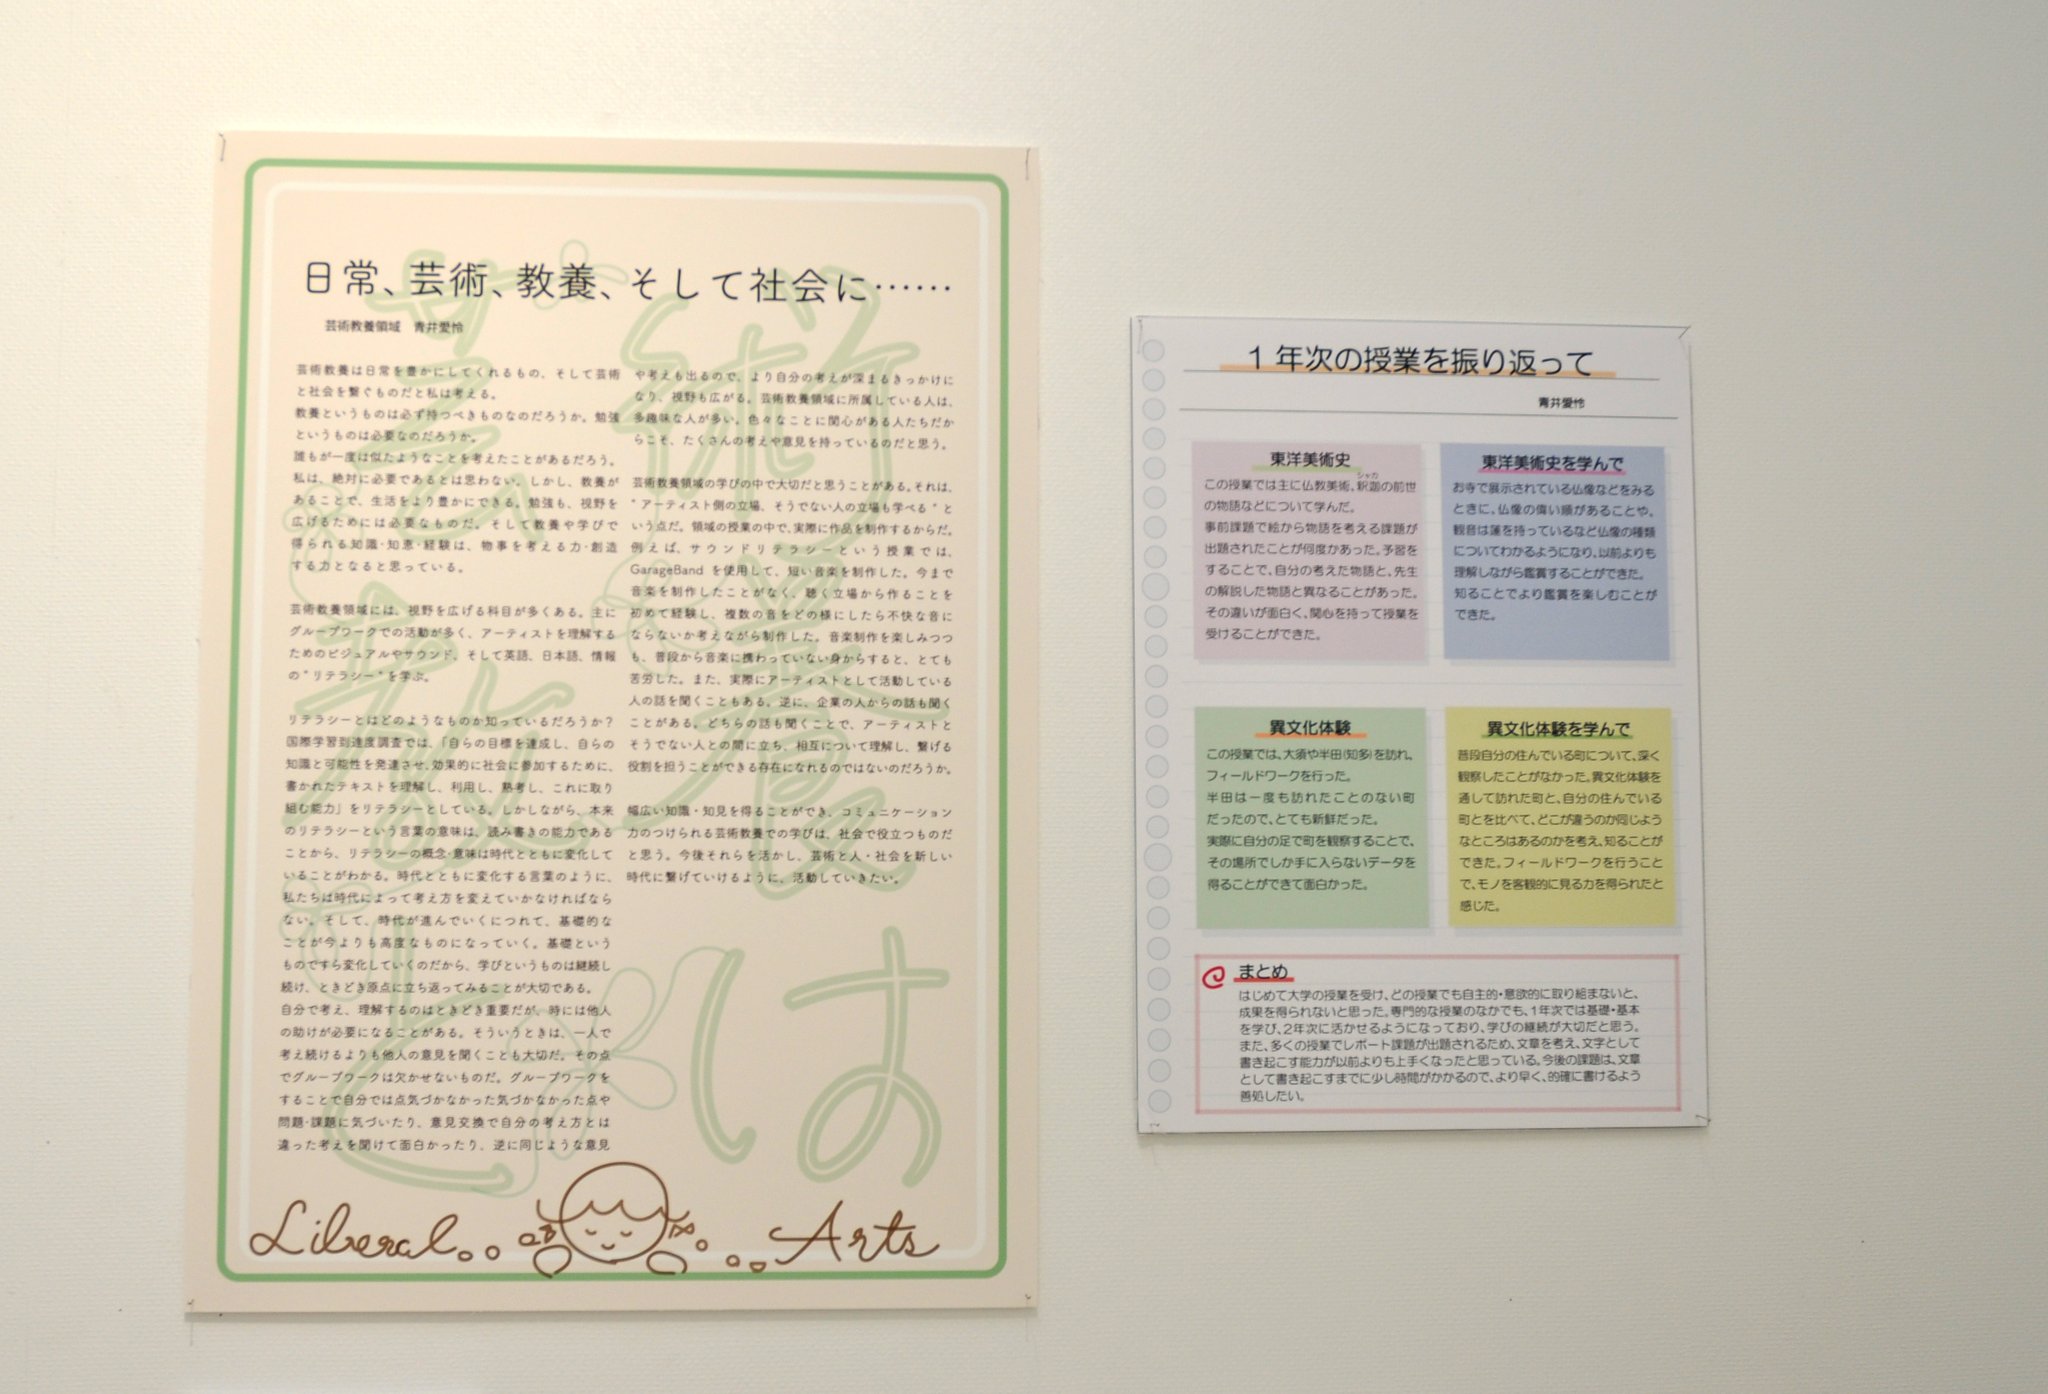 日常、芸術、教養、そして社会に……
芸術教養領域　青井愛怜
芸術教養は日常を豊かにしてくれるもの、そして芸術
と社会を繋ぐものだと私は考える。
教養というものは必ず持つべきものなのだろうか。勉強
というものは必要なのだろうか。
誰もが一度は似たようなことを考えたことがあるだろう。
私は、絶対に必要であるとは思わない。しかし、教養が
あることで、生活をより豊かにできる。勉強も、視野を
広げるためには必要なものだ。そして教養や学びで
得られる知識・知恵・経験は、物事を考える力・創造
する力となると思っている。
芸術教養領域には、視野を広げる科目が多くある。主に
グループワークでの活動が多く、アーティストを理解する
ためのビジュアルやサウンド、そして英語、日本語、情報
の"リテラシー"を学ぶ。
リテラシーとはどのようなものか知っているだろうか？
国際学習到達度調査では、「自らの目標を達成し、自らの
知識と可能性を発達させ、効果的に社会に参加するために、
書かれたテキストを理解し、利用し、熟考し、これに取り
組む能力」をリテラシーとしている。しかしながら、本来
のリテラシーという言葉の意味は、読み書きの能力である
ことから、リテラシーの概念・意味は時代とともに変化して
いることがわかる。時代とともに変化する言葉のように、
私たちは時代によって考え方を変えていかなければなら
ない。そして、時代が進んでいくにつれて、基礎的な
ことが今よりも高度なものになっていく。基礎という
ものですら変化していくのだから、学びというものは継続し
続け、ときどき原点に立ち返ってみることが大切である。
自分で考え、理解するのはときどき重要だが、時には他人
の助けが必要になることがある。そういうときは、一人で
考え続けるよりも他人の意見を聞くことも大切だ。その点
でグループワークは欠かせないものだ。グループワークを
することで自分では点気づかなかった気づかなかった点や
問題・課題に気づいたり、意見交換で自分の考え方とは
違った考えを聞けて面白かったり、逆に同じような意見
や考えも出るので、より自分の考えが深まるきっかけに
なり、視野も広がる。芸術教養領域に所属している人は、
多趣味な人が多い。色々なことに関心がある人たちだか
らこそ、たくさんの考えや意見を持っているのだと思う。
芸術教養領域の学びの中で大切だと思うことがある。それは、
"アーティスト側の立場、そうでない人の立場も学べる"と
いう点だ。領域の授業の中で、実際に作品を制作するからだ。
例えば、サウンドリテラシーという授業では、
GarageBand を使用して、短い音楽を制作した。今まで
音楽を制作したことがなく、聴く立場から作ることを
初めて経験し、複数の音をどの様にしたら不快な音に
ならないか考えながら制作した。音楽制作を楽しみつつ
も、普段から音楽に携わっていない身からすると、とても
苦労した。また、実際にアーティストとして活動している
人の話を聞くこともある。逆に、企業の人からの話も聞く
ことがある。どちらの話も聞くことで、アーティストと
そうでない人との間に立ち、相互について理解し、繋げる
役割を担うことができる存在になれるのではないのだろうか。
幅広い知識・知見を得ることができ、コミュニケーション
力のつけられる芸術教養での学びは、社会で役立つものだ
と思う。今後それらを活かし、芸術と人・社会を新しい
時代に繋げていけるように、活動していきたい。
芸術教養とは
Liberal Arts
1年次の授業を振り返って
青井愛怜
東洋美術史
シャカ
この授業では主に仏教美術、釈迦の前世
の物語などについて学んだ。
事前課題で絵から物語を考える課題が
出題されたことが何度かあった。予習を
することで、自分の考えた物語と、先生
の解説した物語と異なることがあった。
その違いが面白く、関心を持って授業を
受けることができた。
東洋美術史を学んで
お寺で展示されている仏像などをみる
ときに、仏像の偉い順があることや、
観音は蓮を持っているなど仏像の種類
についてわかるようになり、以前よりも
理解しながら鑑賞することができた。
知ることでより鑑賞を楽しむことが
できた。
異文化体験
この授業では、大須や半田(知多)を訪れ、
フィールドワークを行った。
半田は一度も訪れたことのない町
だったので、とても新鮮だった。
実際に自分の足で町を観察することで、
その場所でしか手に入らないデータを
得ることができて面白かった。
異文化体験を学んで
普段自分の住んでいる町について、深く
観察したことがなかった。異文化体験を
通して訪れた町と、自分の住んでいる
町とを比べて、どこが違うのか同じよう
なところはあるのかを考え、知ることが
できた。フィールドワークを行うこと
で、モノを客観的に見る力を得られたと
感じた。
まとめ
はじめて大学の授業を受け、どの授業でも自主的・意欲的に取り組まないと、
成果を得られないと思った。専門的な授業のなかでも、1年次では基礎・基本
を学び、2年次に活かせるようになっており、学びの継続が大切だと思う。
また、多くの授業でレポート課題が出題されるため、文章を考え、文字として
書き起こす能力が以前よりも上手くなったと思っている。今後の課題は、文章
として書き起こすまでに少し時間がかかるので、より早く、的確に書けるよう
善処したい。